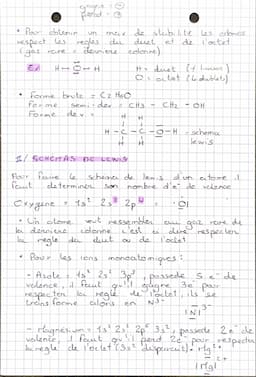 • Pour obtenir un max de stabilité les atomes
respect les règles du duet et de l'octet
(gaz rare = dernière colonne)
Ex H—O—H H = duet
O = octet (4 doublets)
• Forme brute = C2H6O
Forme semi-dev = CH3 - CH2 - OH
Forme dev =
H H
H-C-C-O-H → schema
H H lewis
1/ SCHEMAS DE LEWIS
Pour faire le schema de lewis d'un atome il
faut determiner son nombre d'e- de valence
Oxygène = 1s² 2s² 2p⁴ O
• Un atome veut ressembler au gaz rare de
la dernière colonne c'est à dire respecter
la règle du duet ou de l'octet
• Pour les ions monoatomiques :
- Azote = 1s² 2s² 3p³, possede 5 e- de
valence, il faut qu'il gagne 3e- pour
respecter la règle de l'octet, il se
transforme alors en N3-
|N| 3-
- Magnésium = 1s² 2s² 2p⁶ 3s², possede 2e- de
valence, il faut qu'il perd 2e- pour respecter
la règle de l'octet (3s² disparait). Mg2+
|Mg| 2+